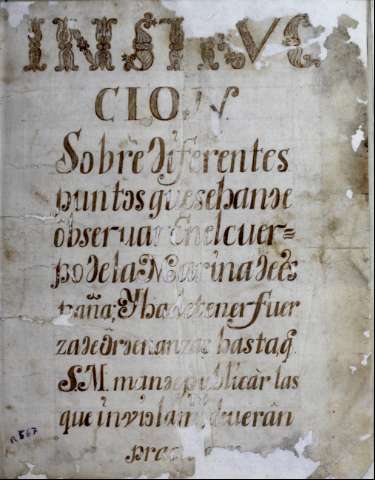 INSTRVC
CION.
Sobre diferentes
puntos que se han de
observar En el cuer=
po de la Marina de Es
paña, Y ha de tener fuer
za de Ordenanzas hasta, q.
S. M. mande publicar las
que inviolam. deveràn
prac